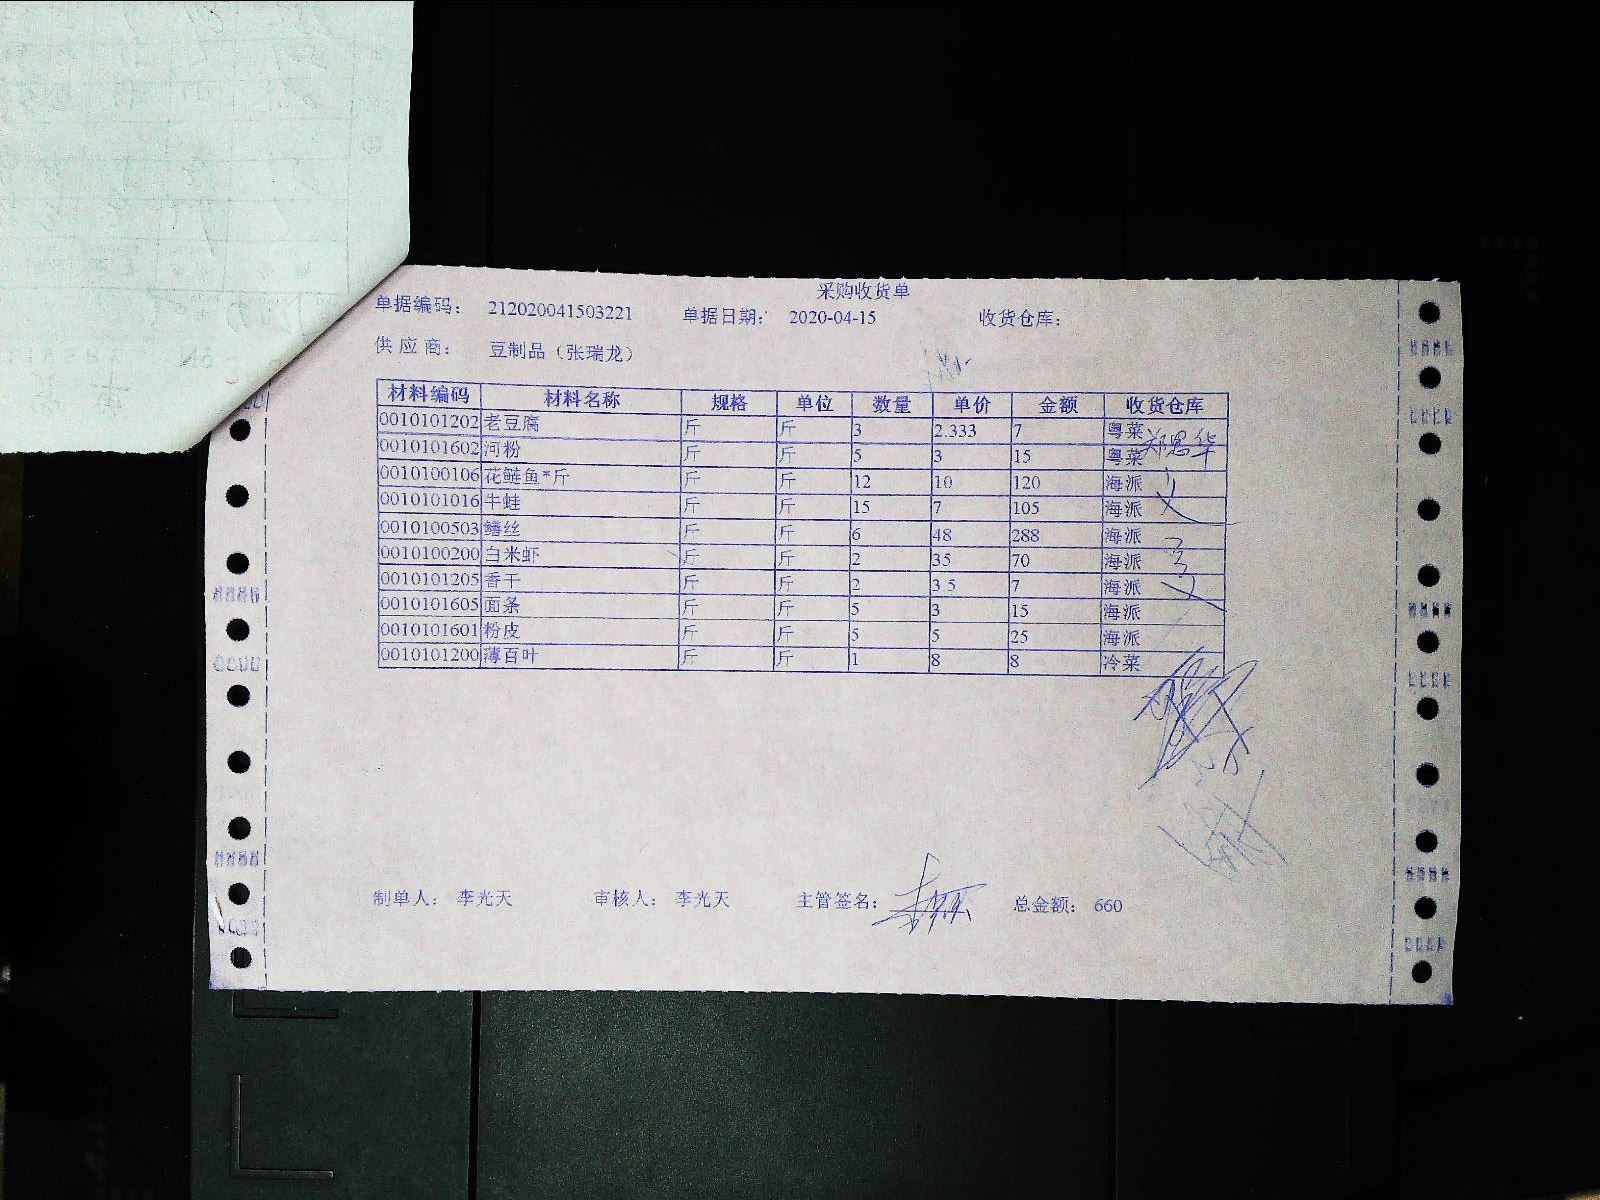 采购收货单
单据编码： 212020041503221 单据日期： 2020-04-15 收货仓库：
供 应 商： 豆制品（张瑞龙）
材料编码 材料名称 规格 单位 数量 单价 金额 收货仓库
0010101202 老豆腐 斤 斤 3 2.333 7 粤菜
0010101602 河粉 斤 斤 5 3 15 粤菜
0010100106 花鲢鱼*斤 斤 斤 12 10 120 海派
0010101016 牛蛙 斤 斤 15 7 105 海派
0010100503 鳝丝 斤 斤 6 48 288 海派
0010100200 白米虾 斤 斤 2 35 70 海派
0010101205 香干 斤 斤 2 3.5 7 海派
0010101605 面条 斤 斤 5 3 15 海派
0010101601 粉皮 斤 斤 5 5 25 海派
0010101200 薄百叶 斤 斤 1 8 8 冷菜
制单人： 李光天 审核人： 李光天 主管签名： 总金额： 660